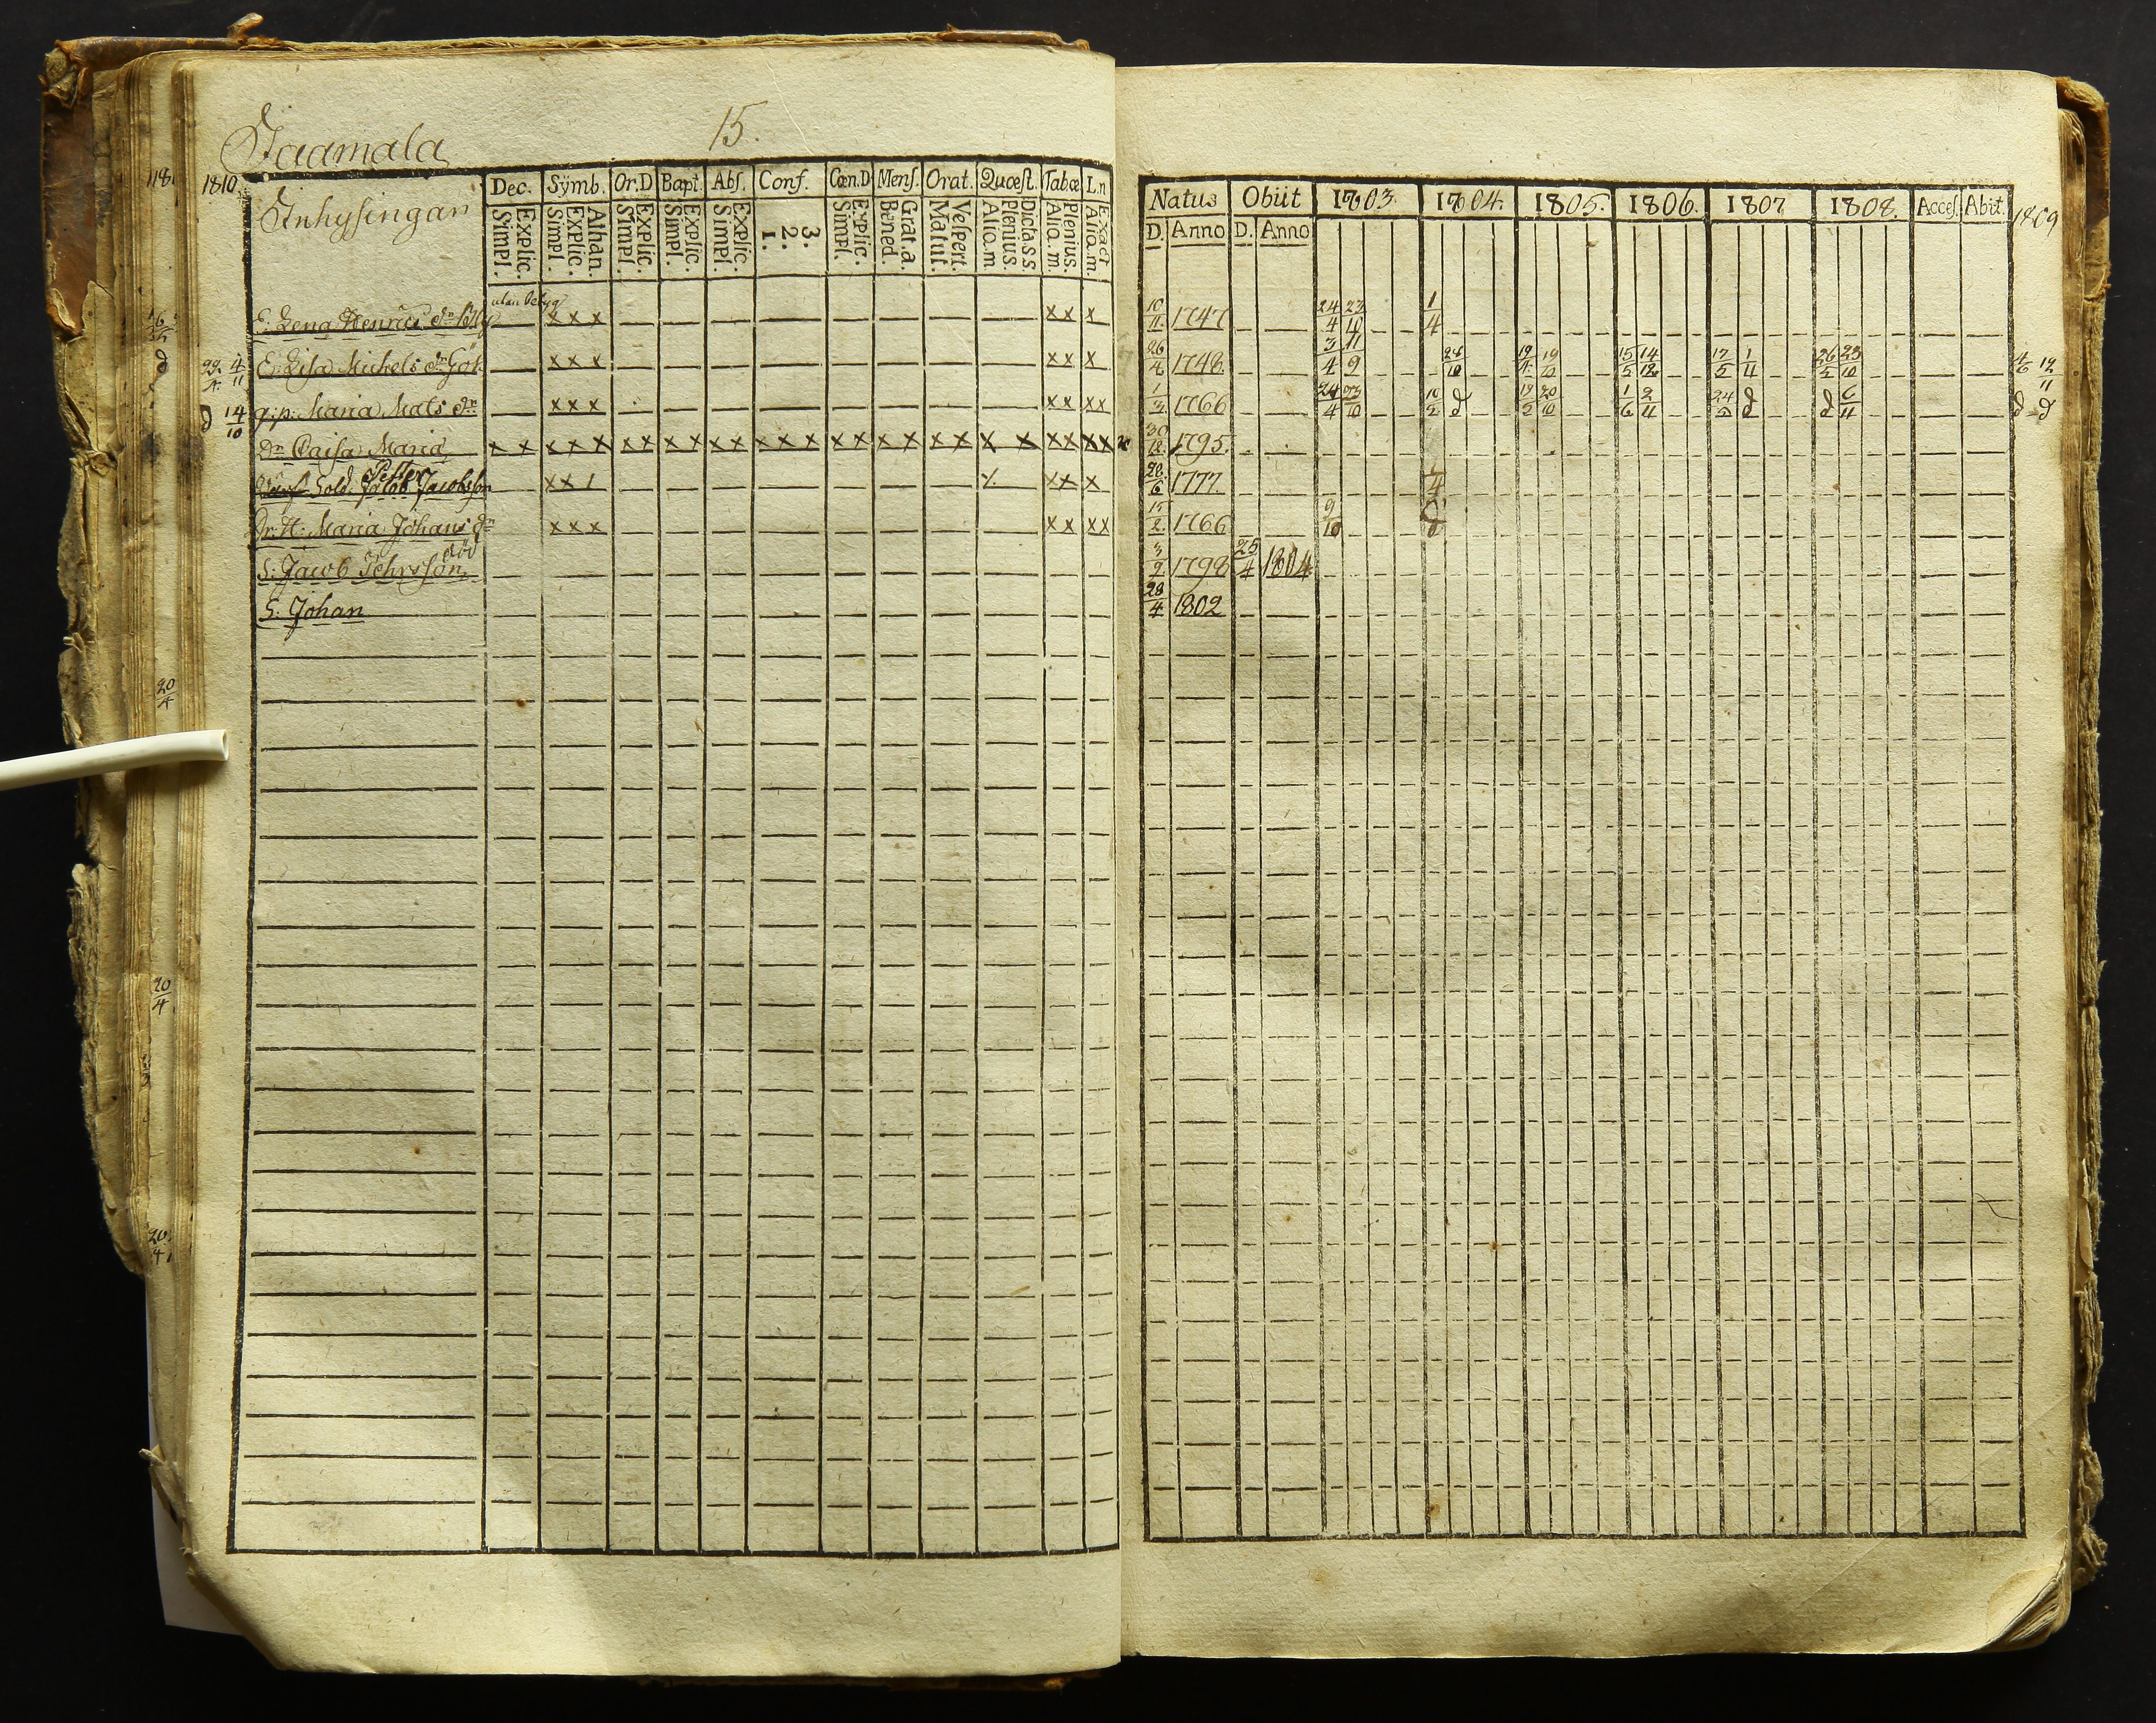 Jaamala 15.
1810. Inhysingar
Dec. Symb. Or.D Bapt. Abs. Conf. Cœn.D Mens. Orat. Quœst. Tab.œ L.n
Simpl. Explic. Simpl. Explic. Athan. Simpl. Explic. Simpl. Explic. Simpl. Explic. 1. 2. 3. Simpl. Explic. Bened. Grat.a. Matut. Vespert. Alio.m. Plenius. Dicta.s.s. Alio.m. Plenius. Alio.m. Exact
Natus Obiit 1803. 1804. 1805. 1806. 1807 1808. Acces. Abit. 1809
D. Anno D. Anno
utan betyg
E: Lena Henrics dr x x x x x x 10/11 1747 24/4 23/10 1/4
22/4 4/11 E: Lisa Michels dr x x x x x x 26/4 1748 3/4 11/9 28/10 19/4 19/10 15/5 14/12 17/5 1/11 26/5 23/10 4/6 12/11
d 14/10 g:p: Maria Mats dr x x x x x x x 1/3 1766 24/4 23/10 10/2 d 19/5 20/10 1/6 2/11 24/5 d d 6/11 d d
dr Caisa Maria x x x x x x x x x x x x x x x x x x x x x x x x x x x 30/12 1795.
Sold. Petter Jacob Jacobsson x x / x x x 28/6 1777 1/4
H: Maria Johans dr x x x x x x x 15/2 1766 9/10 d
död
S: Jacob Pehrsson 3/9 1798 25/4 1804
S: Johan 28/4 1802
20/4
20/4
20/4